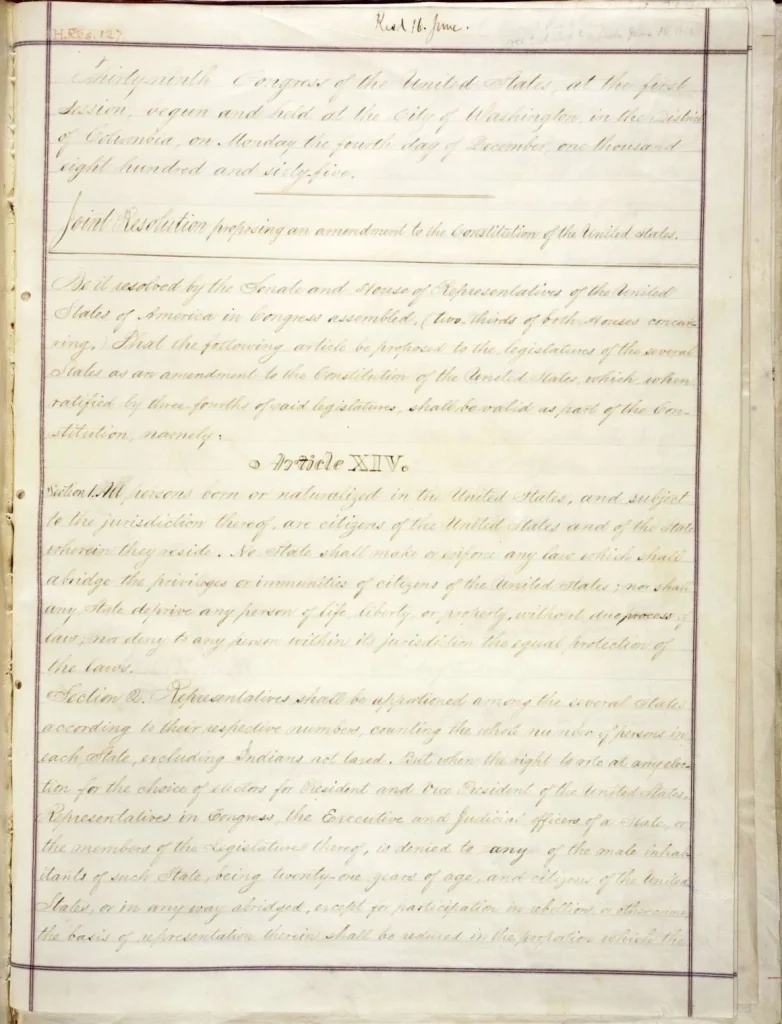 H.Res. 127
Recd 16. June.
Thirty-ninth Congress of the United States, at the first
Session, begun and held at the City of Washington, in the District
of Columbia, on Monday the fourth day of December, one thousand
eight hundred and sixty-five.
Joint Resolution proposing an amendment to the Constitution of the United States.
Be it resolved by the Senate and House of Representatives of the United
States of America in Congress assembled, (two thirds of both Houses concur-
ring,) That the following article be proposed to the legislatures of the several
States as an amendment to the Constitution of the United States, which, when
ratified by three-fourths of said legislatures, shall be valid as part of the Con-
stitution, namely:
Article XIV.
Section 1. All persons born or naturalized in the United States, and subject
to the jurisdiction thereof, are citizens of the United States and of the State
wherein they reside. No State shall make or enforce any law which shall
abridge the privileges or immunities of citizens of the United States; nor shall
any State deprive any person of life, liberty, or property, without due process of
law; nor deny to any person within its jurisdiction the equal protection of
the laws.
Section 2. Representatives shall be apportioned among the several States
according to their respective numbers, counting the whole number of persons in
each State, excluding Indians not taxed. But when the right to vote at any elec-
tion for the choice of electors for President and Vice President of the United States,
Representatives in Congress, the Executive and Judicial officers of a State, or
the members of the Legislature thereof, is denied to any of the male inhab-
itants of such State, being twenty-one years of age, and citizens of the United
States, or in any way abridged, except for participation in rebellion, or other crime,
the basis of representation therein shall be reduced in the proportion which the